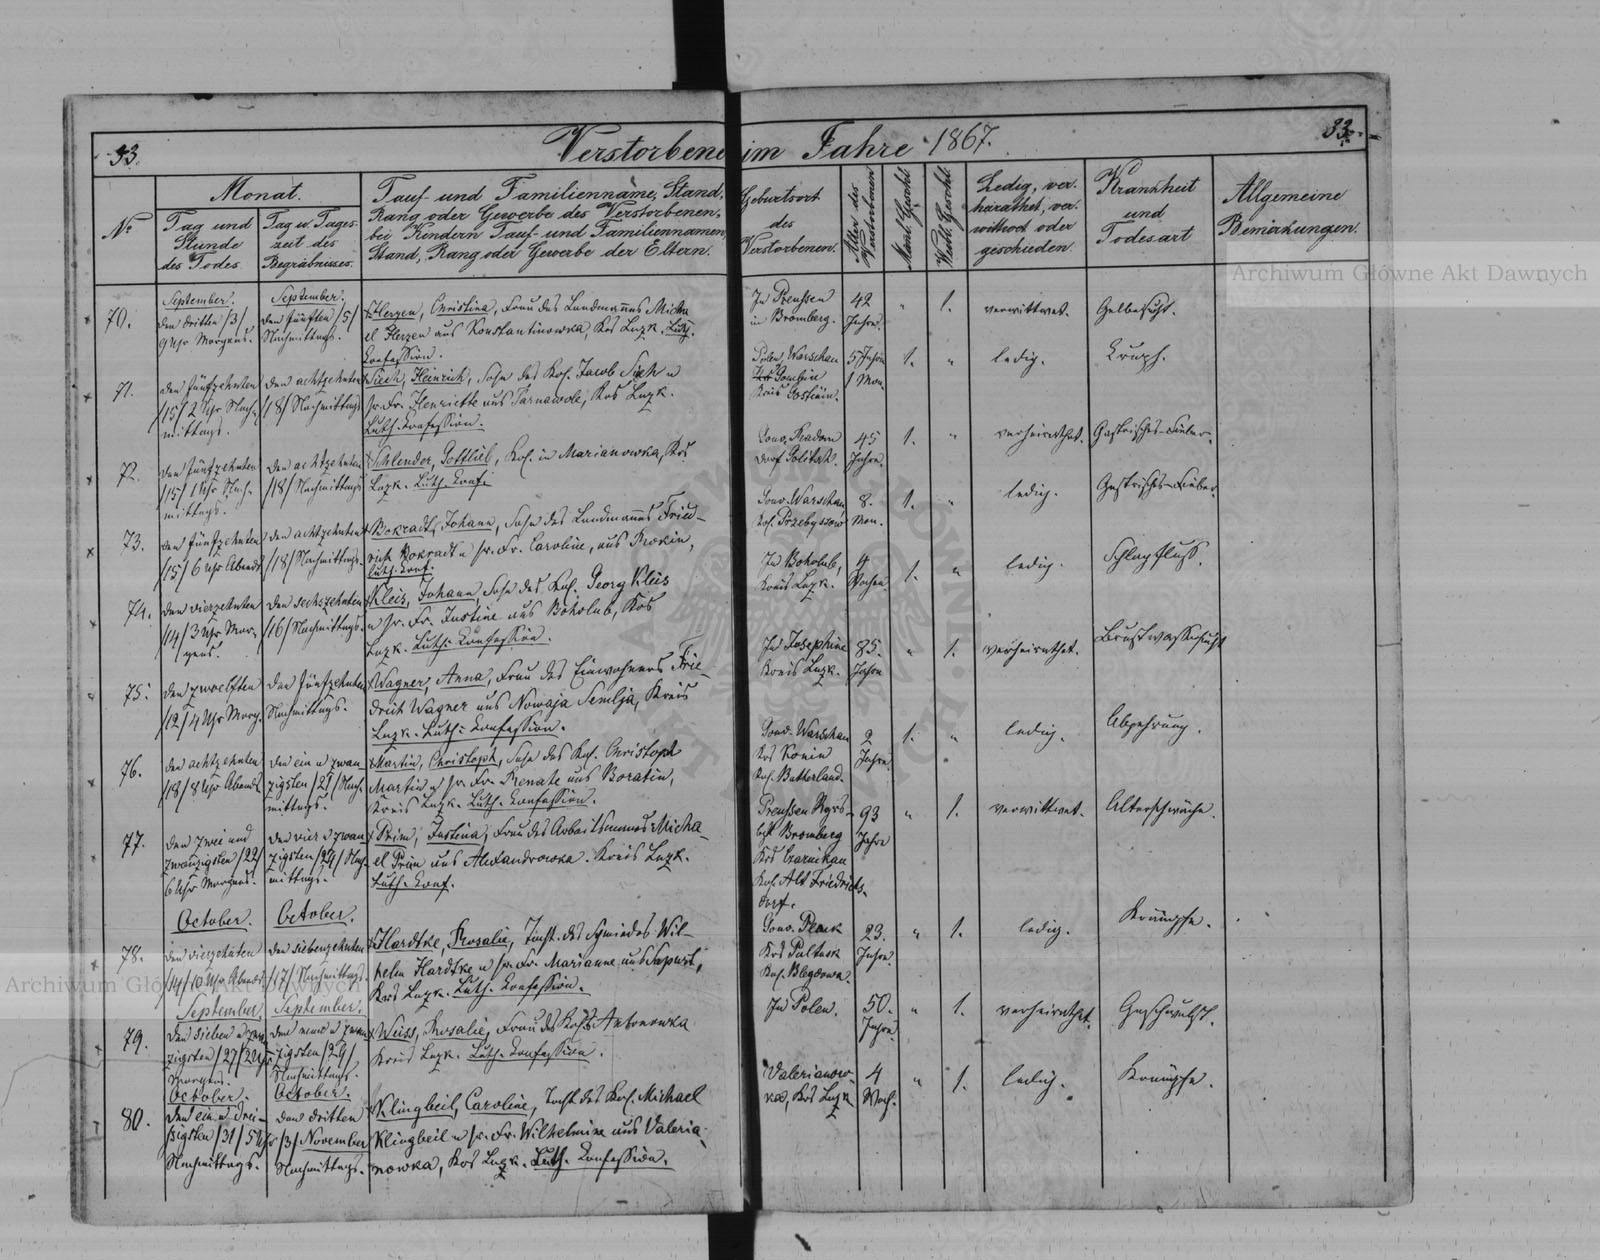 33.
Verstorbene im Jahre 1867.
33.
No
Monat.
Tag und
Stunde
des Todes.
Tag u. Tages-
zeit des
Begräbnisses.
Tauf- und Familienname, Stand,
Rang oder Gewerbe des Verstorbenen,
bei Kindern Tauf- und Familiennamen,
Stand, Rang oder Gewerbe der Eltern.
Geburtsort
des
Verstorbenen.
Alter des
Verstorbenen
Männl. Geschl.
Weibl. Geschl.
Ledig, ver-
heirathet, ver-
wittwet oder
geschieden.
Krannheit
und
Todesart
Allgemeine
Bemerkungen.
Archiwum Główne Akt Dawnych
70.
September.
den dritten /3/
9 Uhr Morgens.
September.
den fünften /5/
Nachmittags.
Herzen, Christina, Frau des Landmannes Micha
el Herzen aus Konstantinowka, Krs Luzk. Luth.
Confession.
In Preussen
in Bromberg.
42
Jahre.
" 1.
verwittwet.
Gelbsucht.
71.
den fünfzehnten
/15/ 2 Uhr Nach-
mittags.
den achtzehnten
/18/ Nachmittags
Heinrich, Sohn des Kol. Jacob
u
sr. Fr. Henriette aus Tarnawola, Krs Luzk.
Luth. Confession.
Polen, Warschau
Gombin
Kreis Gostinin.
5 Jahre
1 Mon.
1. "
ledig.
Krups.
72.
den fünfzehnten
/15/ 1 Uhr Nach-
mittags.
den achtzehnten
/18/ Nachmittags
Schlender, Gottlieb, Kol. in Marianowka, Krs
Luzk. Luth. Conf.
Gouv. Radom
Dorf
45
Jahre.
1. "
verheirathet.
Gastrisches-Fieber.
73.
den fünfzehnten
/15/ 6 Uhr Abends
den achtzehnten
/18/ Nachmittags.
Bokradt, Johann, Sohn des Landmannes Fried-
rich Bokradt u sr. Fr. Caroline, aus
Luth. Conf.
Gouv. Warschau
Kol. Przebyszow
8.
Mon.
1. "
ledig.
Gastrisches-Fieber.
74.
den vierzehnten
/14/ 3 Uhr Mor-
gens.
den sechszehnten
/16/ Nachmittags.
Kleis, Johann, Sohn des Kol. Georg Kleis
u sr. Fr. Justine aus Boholub, Krs
Luzk. Luth. Confession.
In Boholub,
Kreis Luzk.
4
Wochen.
1. "
ledig.
Schlagfluss.
75.
den zwoelften
/12/ 4 Uhr Morg.
den fünfzehnten
Nachmittags.
Wagner, Anna, Frau des Einwohners Frie-
drich Wagner aus Nowaja Semlja, Kreis
Luzk. Luth. Confession.
In Josephine
Kreis Luzk.
85.
Jahre
" 1.
verheirathet.
Brustwassersucht
76.
den achtzehnten
/18/ 8 Uhr Abends
den ein u zwan
zigsten /21/ Nach-
mittags.
Martin, Christoph, Sohn des Kol. Christoph
Martin u sr. Fr. Renate aus Boratin,
Kreis Luzk. Luth. Confession.
Gouv. Warschau
Krs Konin
Kol. Butterland.
2
Jahre.
1. "
ledig.
Abzehrung.
77.
den zwei und
zwanzigsten /22/
6 Uhr Morgens.
den vier u zwan
zigsten /24/ Nach-
mittags.
Prim, Justina, Frau des Arbeitsmannes Micha-
el Prim aus Alexandrowka. Kreis Luzk.
Luth. Conf.
Preussen Rgrs
bzk Bromberg
Krs Czarnikau
Kol. Alt Friedrichs-
dorf.
93
Jahre
" 1.
verwittwet.
Altersschwäche.
October.
October.
78.
den vierzehnten
/14/ 10 Uhr Abends.
den siebenzehnten
/17/ Nachmittags.
Hardtke, Rosalie, Tocht. des Schmiedes Wil-
helm Hardtke u sr. Fr. Marianne aus Sapust,
Krs Luzk. Luth. Confession.
Gouv.
Krs Pultusk
Kol.
23.
Jahre.
" 1.
ledig.
Krämpfe.
Archiwum Główne Akt Dawnych
September.
September.
79.
den sieben u zwan
zigsten /27/ 2 Uhr
Morgens.
den neun u zwan
zigsten /29/
Nachmittags.
Weiss, Rosalie, Frau des Antonowka
Kreis Luzk. Luth. Confession.
In Polen.
50.
Jahre.
" 1.
verheirathet.
Geschwulst.
October.
October.
80.
den ein u drei-
ssigsten /31/ 5 Uhr
Nachmittags.
den dritten
/3/ November
Nachmittags.
Klingbeil, Caroline, Tocht des Kol. Michael
Klingbeil u sr. Fr. Wilhelmine aus Valeria-
nowka, Krs Luzk. Luth. Confession.
Valerianow-
ka, Krs Luzk
4
Woch.
" 1.
ledig.
Krämpfe.